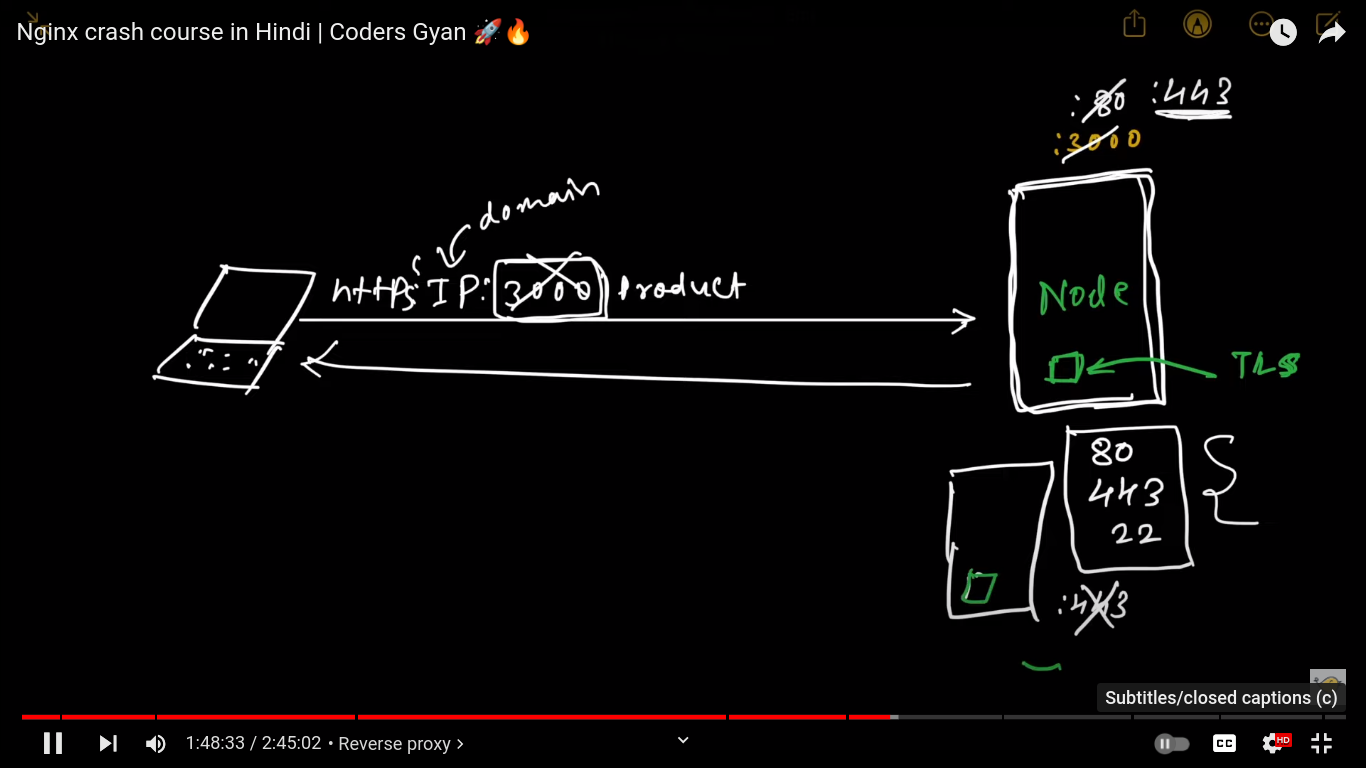 Nginx crash course in Hindi | Coders Gyan 🚀🔥
:80 :443
:3000
domain
https: IP: 3000 Product
Node
TLS
80
443
22
:443
Subtitles/closed captions (c)
1:48:33 / 2:45:02 • Reverse proxy >
CC
HD